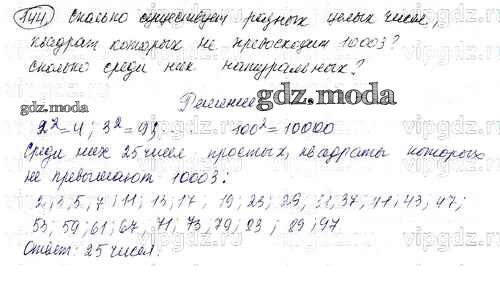 144. Сколько существует разных целых чисел,
квадрат которых не превосходит 10003?
Сколько среди них натуральных?
gdz.moda
Решение gdz.moda
2²=4; 3²=9; 100²=10000
Среди них 25 чисел простых, квадраты которых
не превышают 10003:
2, 3, 5, 7; 11; 13; 17; 19; 23; 29; 37; 41; 43; 47;
53; 59; 61; 67; 71; 73; 79; 23; 89; 97
Ответ: 25 чисел.